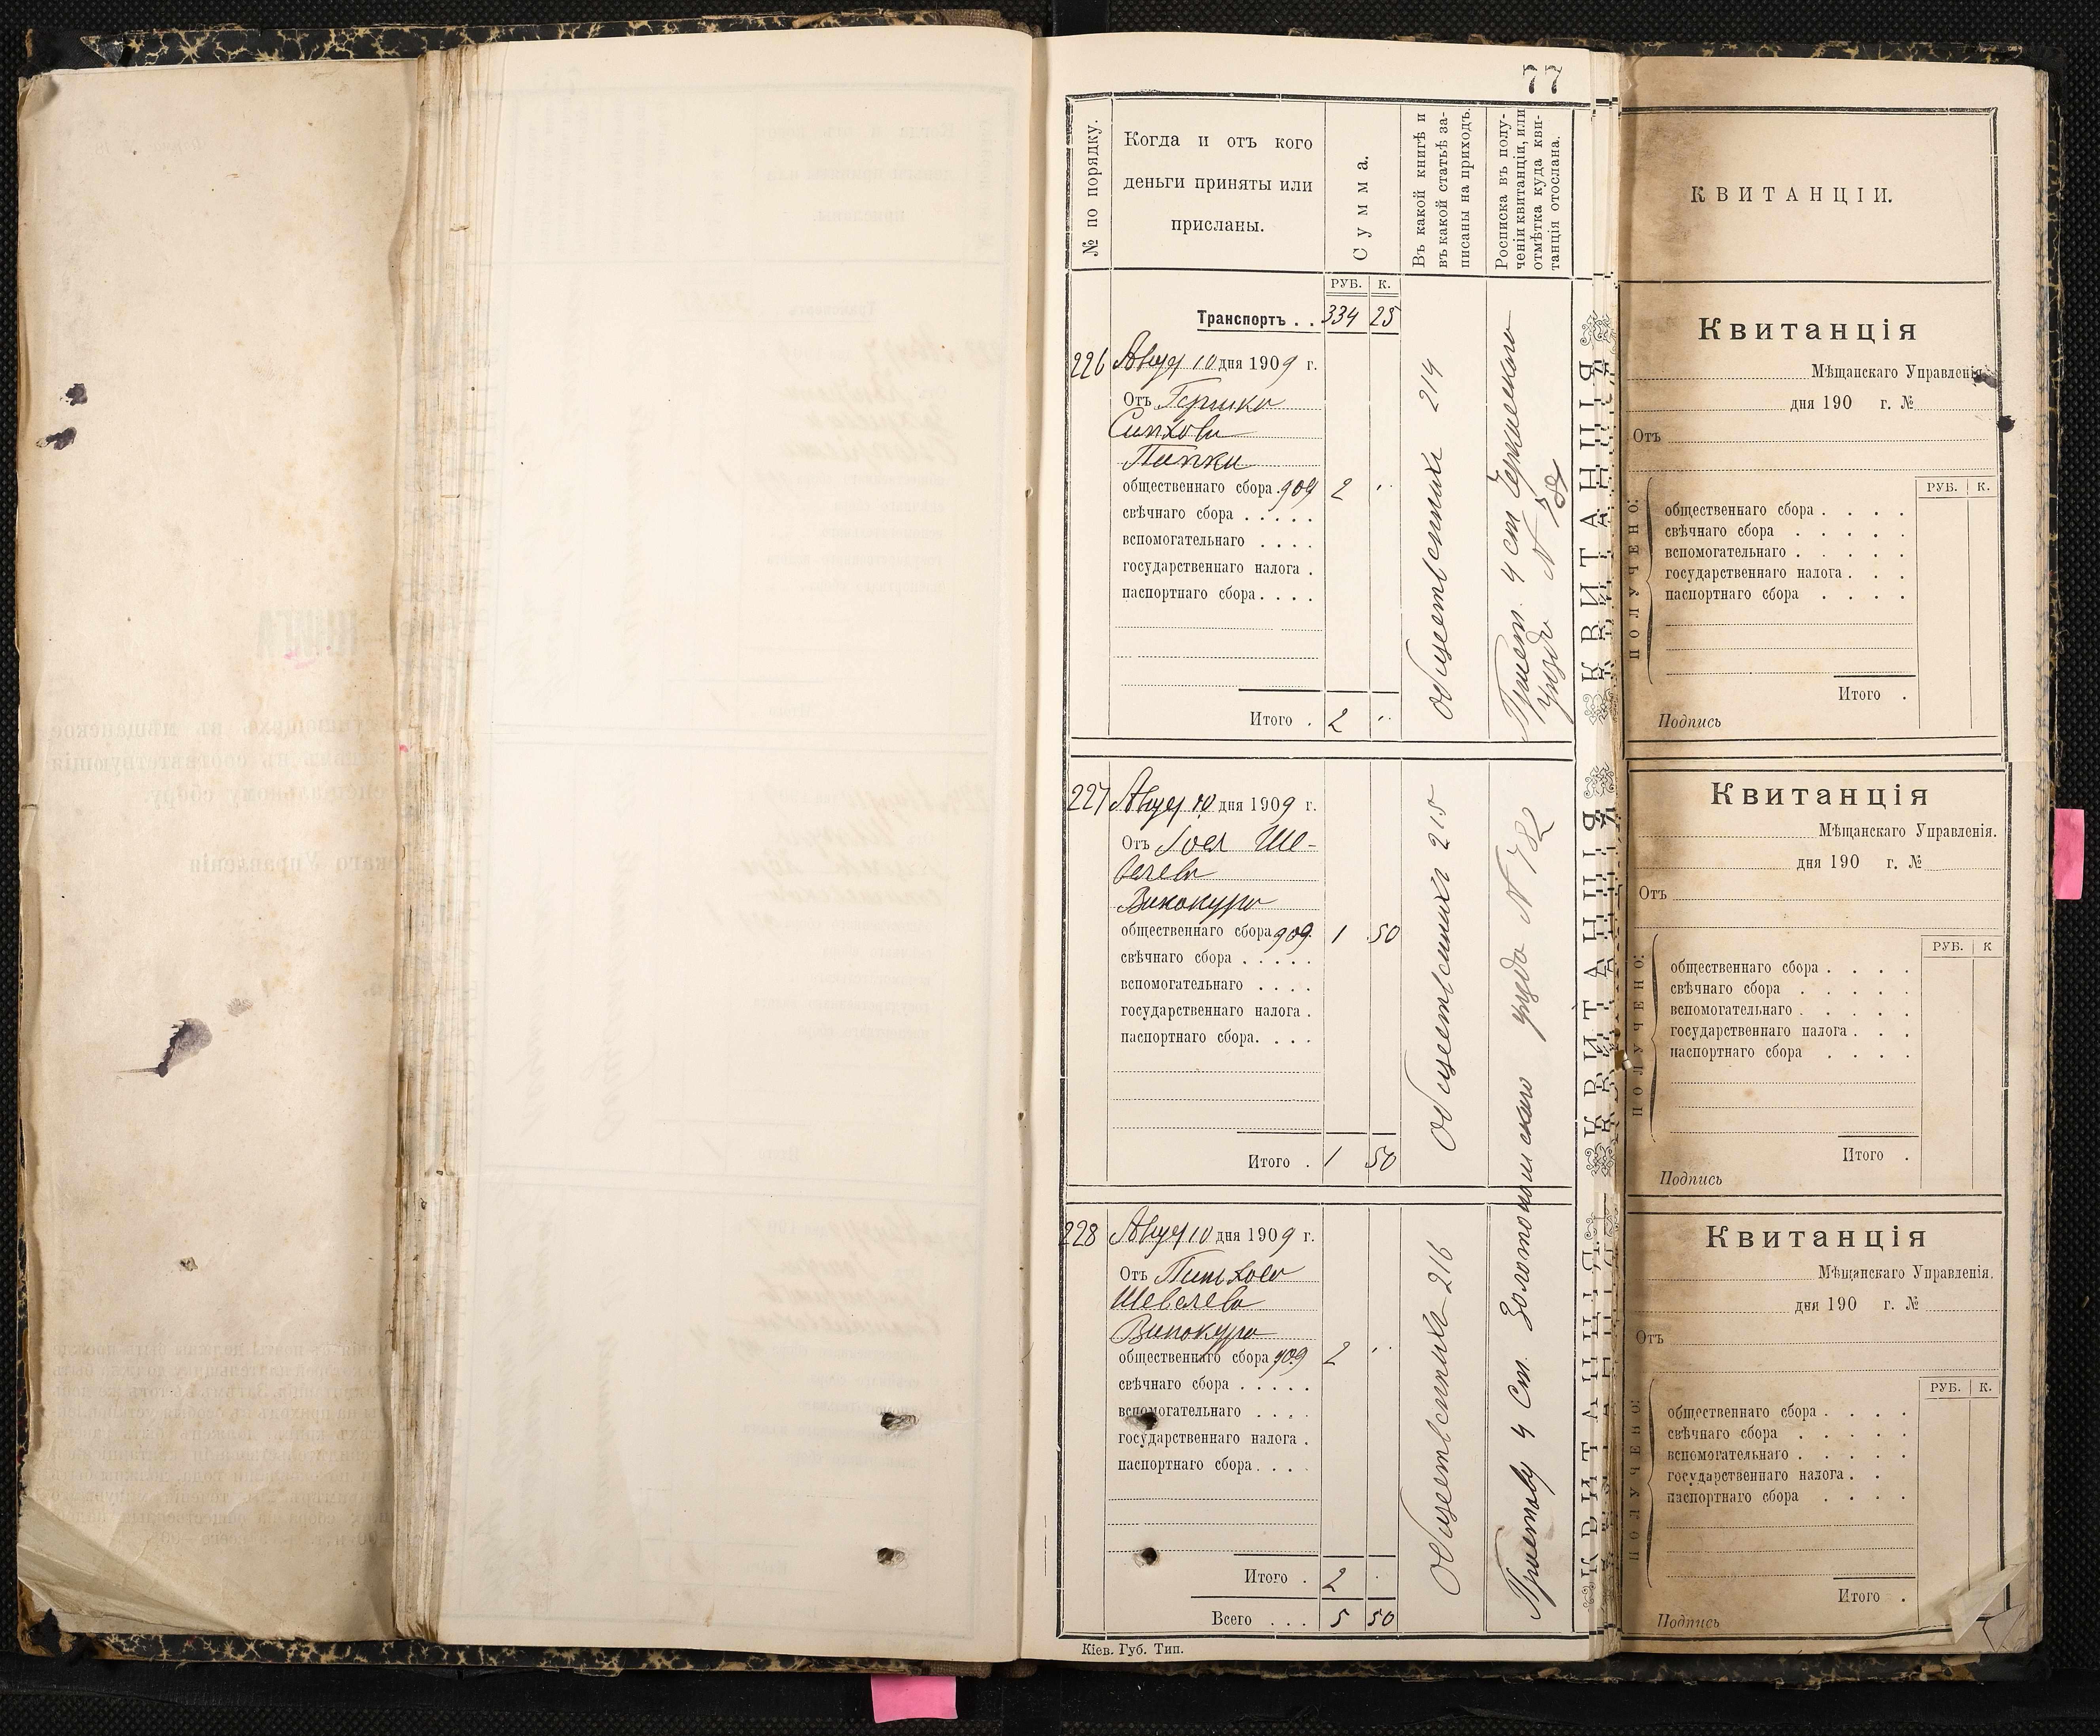 77
№ по порядку.
Когда и отъ кого
деньги приняты или
присланы.
Сумма.
Въ какой книгѣ и
въ какой статьѣ за-
писаны на приходъ.
Росписка въ полу-
ченіи квитанціи, или
отмѣтка куда кви-
танція отослана.
РУБ. К.
Транспортъ . . 334 25
226 Авгус 10 дня 1909 г.
Отъ Гершко
Сипхова
Папки
общественнаго сбора . 909 2 "
свѣчнаго сбора . . . . .
вспомогательнаго . . . .
государственнаго налога .
паспортнаго сбора . . . .
Итого . 2 "
Общественных 214
Прист. 4 ст Черкасскаго
уезда № 782
227 Авгус 10 дня 1909 г.
Отъ Іоел Ше-
велева
Винокура
общественнаго сбора 909. 1 50
свѣчнаго сбора . . . . .
вспомогательнаго . . . .
государственнаго налога .
паспортнаго сбора. . . .
Итого . 1 50
Общественных 215
228 Авгус 10 дня 1909 г.
Отъ Пинхоса
Шевелева
Винокура
общественнаго сбора 909 2 "
свѣчнаго сбора . . . . .
вспомогательнаго . . . .
государственнаго налога .
паспортнаго сбора . . . .
Итого . 2
Всего . . . 5 50
Общественных 216
Приставу 4 Ст. Золотоношскаго уезда № 782
Кіев. Губ. Тип.
КВИТАНЦІИ.
Квитанція
Мѣщанскаго Управленія
дня 190 г. №
Отъ
ПОЛУЧЕНО:
РУБ. К.
общественнаго сбора . . . .
свѣчнаго сбора . . . . .
вспомогательнаго . . . . .
государственнаго налога . . .
паспортнаго сбора . . . .
Итого .
Подпись
Квитанція
Мѣщанскаго Управленія.
дня 190 г. №
Отъ
ПОЛУЧЕНО:
РУБ. К
общественнаго сбора . . . .
свѣчнаго сбора . . . . .
вспомогательнаго . . . . .
государственнаго налога . . .
паспортнаго сбора . . . .
Итого .
Подпись
Квитанція
Мѣщанскаго Управленія.
дня 190 г. №
Отъ
ПОЛУЧЕНО:
РУБ. К.
общественнаго сбора . . . .
свѣчнаго сбора . . . . .
вспомогательнаго . . . . .
государственнаго налога . .
паспортнаго сбора . . . .
Итого .
Подпись